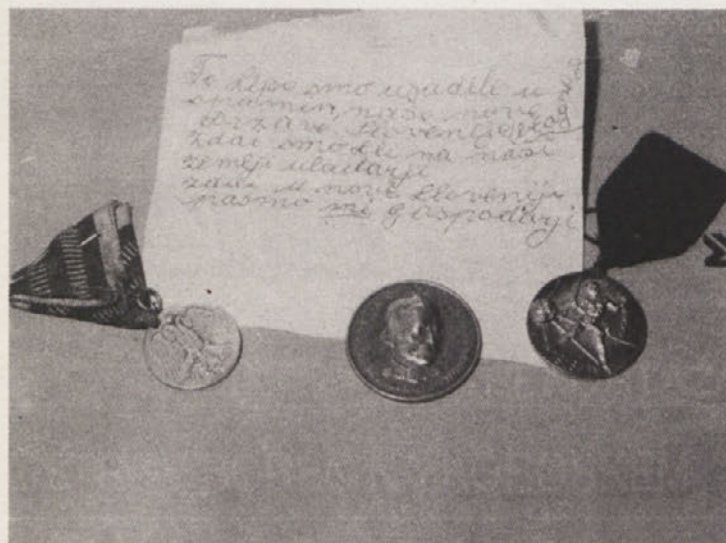 Te Lipe smo usadile u
spamin, naše nove
Države Slovenije
zdai smo li na naši
zemlji uladarji
zdaj u nove Slovenije
pa smo mi gospodarji